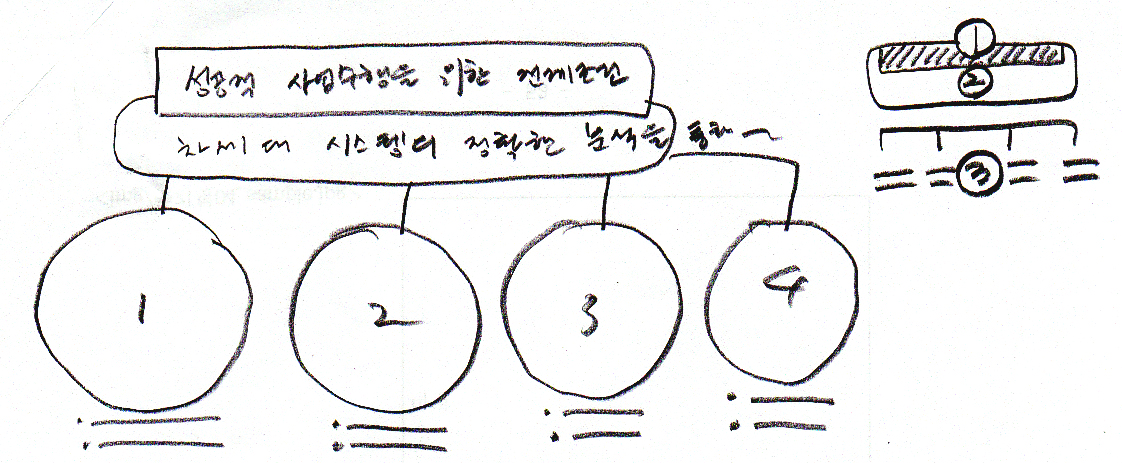 성공적 사업수행을 위한 전제조건
차세대 시스템의 정확한 분석을 통해~
1
2
3
4
1
2
3